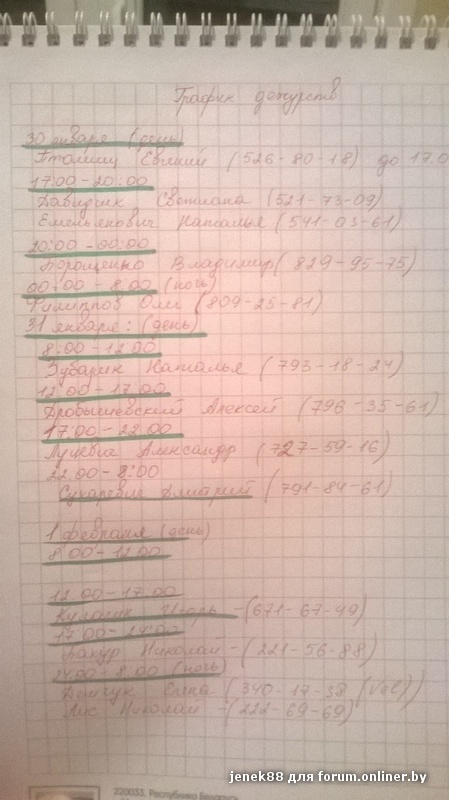 График дежурств
30 января (день)
Евгений (526-80-18) до 17.0
17:00-20:00
Давидчик Светлана (521-73-09)
Емельянович Наталья (541-03-61)
20:00-00:00
Порощенко Владимир (829-95-75)
00:00-8.00 (ночь)
Филиппов Олег (809-25-81)
31 января: (день)
8:00-12.00
Зубарик Наталья (793-18-24)
12.00-17.00
Дробышевский Алексей (796-35-61)
17:00-22.00
Луцевич Александр (727-59-16)
22.00-8:00
Сухаревич Дмитрий (791-84-61)
1 февраля (день)
8 00-12.00
12.00-17.00
Игорь -(671-67-49)
17:00-24:00
Николай -(221-56-88)
24:00-8.00 (ночь)
Демчук Елена (340-17-38 (Vel))
Лис Николай -(222-69-69)
220033, Республика Беларусь
jenek88 для forum.onliner.by